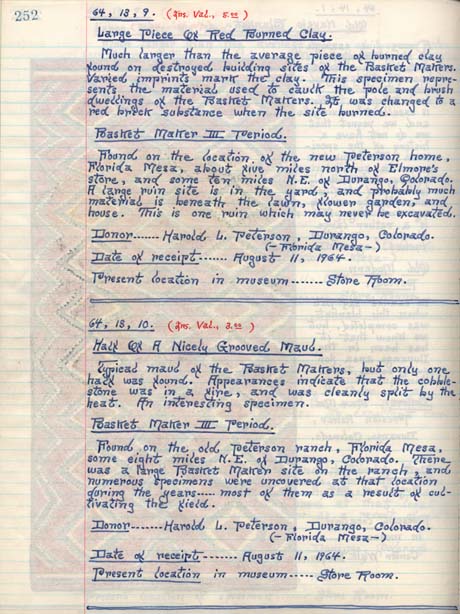 252
64, 13, 9. (Ins. Val., 5.00)
Large Piece Of Red Burned Clay.
Much larger than the average piece of burned clay
found on destroyed building sites of the Basket Makers.
Varied imprints mark the clay. This specimen repre-
sents the material used to caulk the pole and brush
dwellings of the Basket Makers. It was changed to a
red brick substance when the site burned.
Basket Maker III Period.
Found on the location of the new Peterson home,
Florida Mesa, about five miles north of Elmore's
store, and some ten miles N.E. of Durango, Colorado.
A large ruin site is in the yard, and probably much
material is beneath the lawn, flower garden, and
house. This is one ruin which may never be excavated.
Donor....... Harold L. Peterson, Durango, Colorado.
(-Florida Mesa-)
Date of receipt....... August 11, 1964.
Present location in museum....... Store Room.
64, 13, 10. (Ins. Val., 3.00)
Half Of A Nicely Grooved Maul.
Typical maul of the Basket Makers, but only one
half was found. Appearances indicate that the cobble-
stone was in a fire, and was cleanly split by the
heat. An interesting specimen.
Basket Maker III Period.
Found on the old Peterson ranch, Florida Mesa,
some eight miles N.E. of Durango, Colorado. There
was a large Basket Maker site on the ranch, and
numerous specimens were uncovered at that location
during the years.... most of them as a result of cul-
tivating the field.
Donor....... Harold L. Peterson, Durango, Colorado.
(-Florida Mesa-)
Date of receipt....... August 11, 1964.
Present location in museum..... Store Room.